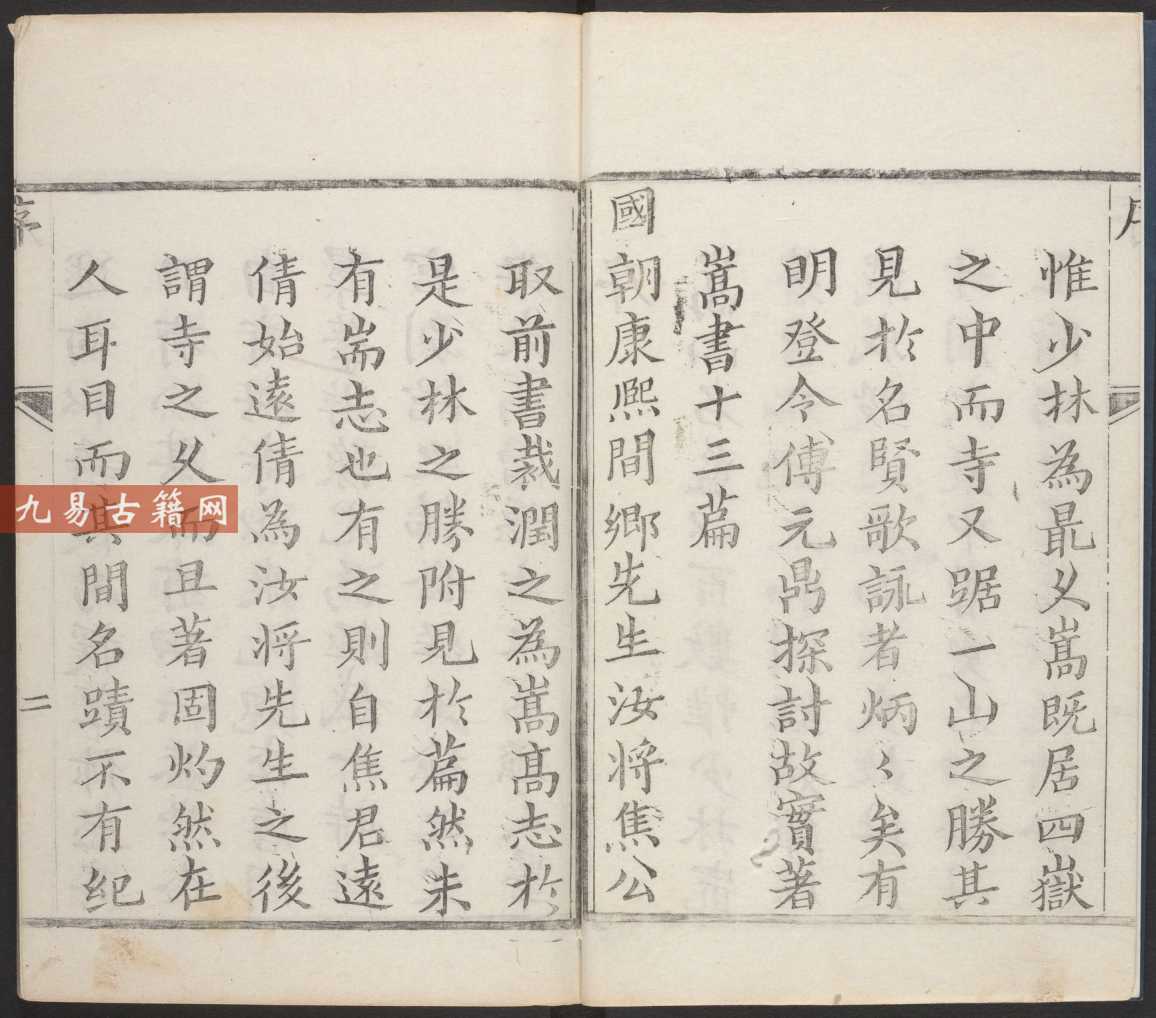 惟少林為最久嵩既居四嶽
之中而寺又踞一山之勝其
見於名賢歌詠者炳〻矣有
明登令傅元鼎探討故實著
嵩書十三篇
國朝康熙間鄉先生汝將焦公
取前書裁潤之為嵩高志於
是少林之勝附見於篇然未
有耑志也有之則自焦君遠
倩始遠倩為汝將先生之後
謂寺之久而且著固灼然在
人耳目而其間名蹟不有紀
序
二
九易古籍网